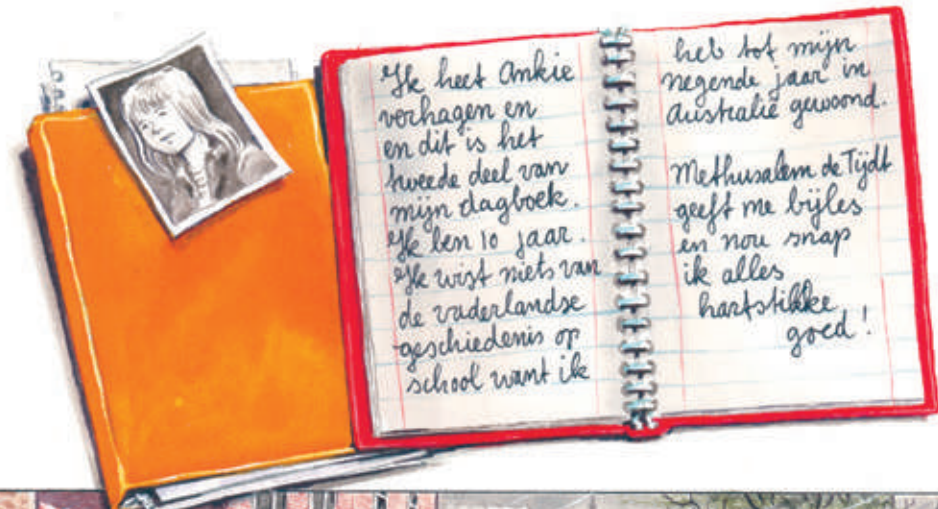 Ik heet Ankie
verhagen en
en dit is het
tweede deel van
mijn dagboek.
Ik ben 10 jaar.
Ik wist niets van
de vaderlandse
geschiedenis op
school want ik
heb tot mijn
negende jaar in
Australië gewoond.
Methusalem de Tijdt
geeft me bijles
en nou snap
ik alles
hartstikke
goed!